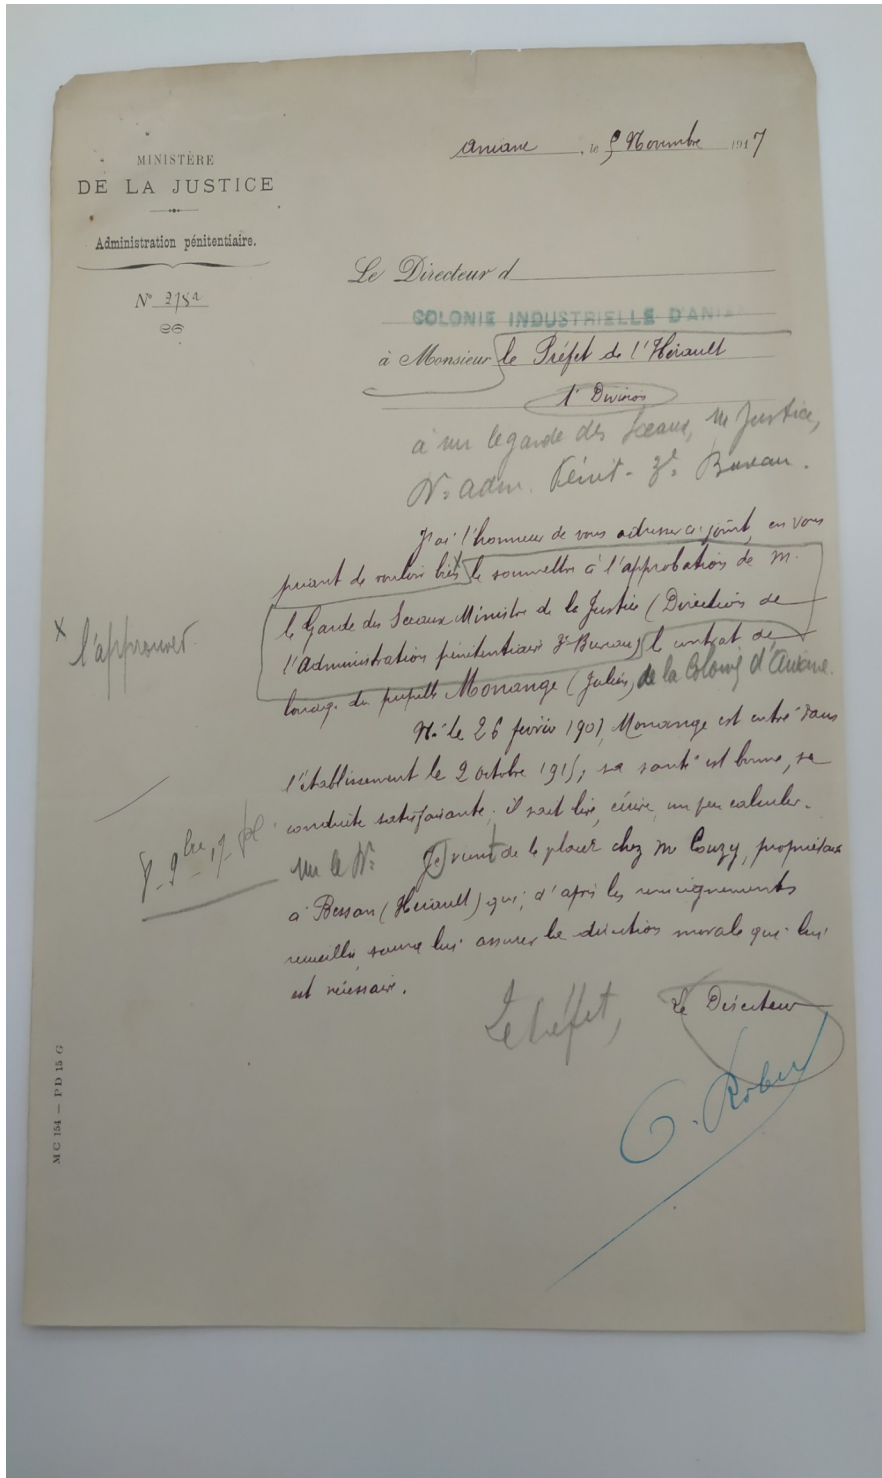 Aniane, le 5 Novembre 1917
MINISTÈRE
DE LA JUSTICE
Administration pénitentiaire.
N° 2782
Le Directeur d
COLONIE INDUSTRIELLE D'ANIANE
à Monsieur le Préfet de l'Hérault
1e Division
à M le garde des Sceaux, M Justice,
Don adm. Pénit - 3e Bureau.
J'ai l'honneur de vous adresser ci-joint, en vous
priant de vouloir bien x le soumettre à l'approbation de M.
le Garde des Sceaux Ministre de la Justice (Direction de
x l'approuver.
l'Administration pénitentiaire 3e Bureau) le contrat de
louage du pupille Monange (Julien) de la Colonie d'Aniane.
Né le 26 février 1901, Monange est entré dans
l'établissement le 2 octobre 1915; sa santé est bonne, sa
conduite satisfaisante; il sait lire, écrire, un peu calculer.
8 - 9bre 17
M le Dr
Je vient de le placer chez M Couzy, propriétaire
à Bessan (Hérault) qui, d'après les renseignements
recueillis, saura lui assurer la direction morale qui lui
est nécessaire.
Le Préfet,
Le Directeur
MC 154 — PD 15 G